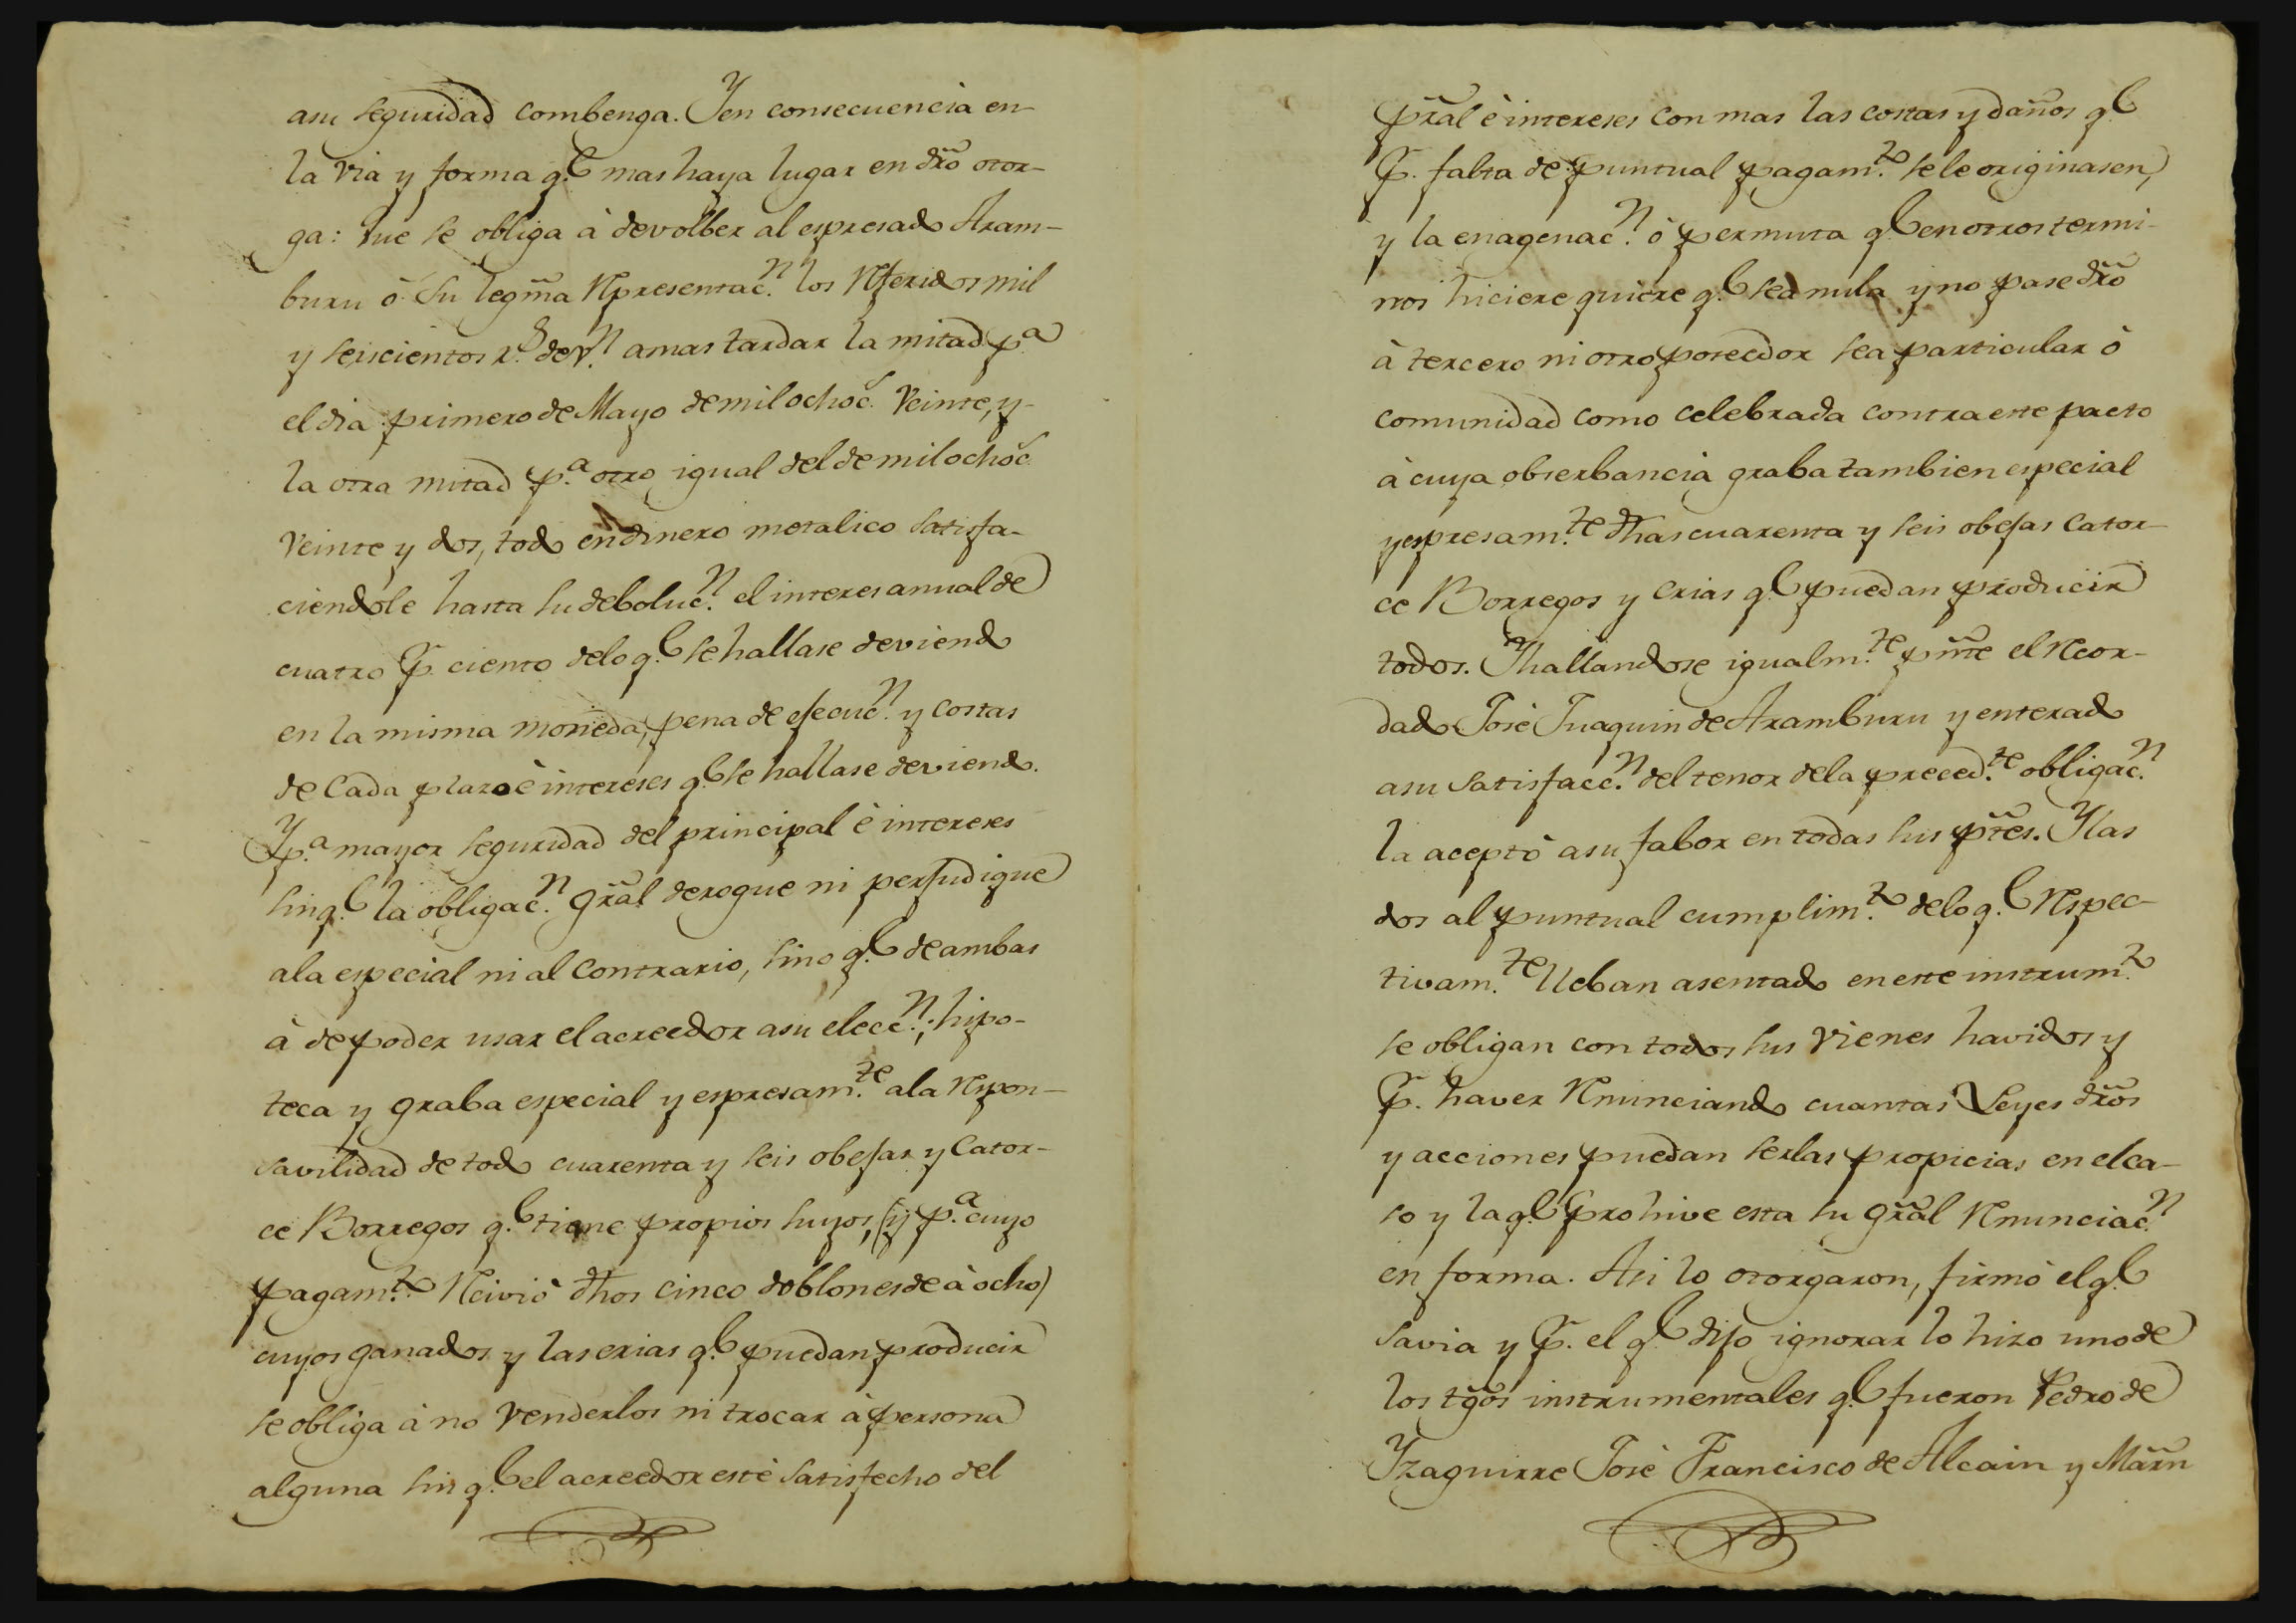 asu seguridad combenga. Y en consecuencia en
la via y forma q.e mas haya lugar en dro otor-
ga: que se obliga à devolber al espresado Aram-
buru ò su legma Representac.n los Referidos mil
y seiscientos r.s de v.n a mas tardar la mitad p.a
el dia primero de Mayo de mil ochoc. Veinte, y
la otra mitad p.a otro igual del de mil ochoc.
Veinte y dos, todo en dinero metalico satisfa-
ciendole hasta su deboluc.n el interes anual de
cuatro p. ciento de lo q.e se hallase deviendo
en la misma moneda, pena de ejecuc.n y costas
de Cada plazo è intereses q.e se hallase deviendo.
Y p.a mayor seguridad del principal è intereses
sin q.e la obligac.n gral derogue ni perjudique
ala especial ni al Contrario, sino q.e de ambas
à de poder usar el acreedor asu elecc.n; hipo-
teca y graba especial y espresam.te ala Respon-
savilidad de todo cuarenta y seis obejas y Cator-
ce Borregos q.e tiene propios suyos, (y p.a cuyo
pagam.to Recivió dhos cinco doblones de à ocho)
cuyos ganados y las crias q.e puedan producir
se obliga à no Venderlos ni trocar à persona
alguna sin q.e el acreedor esté satisfecho del
pral è intereses con mas las costas y daños q.e
p. falta de puntual pagam.to se le originasen,
y la enagenac.n ò permuta q.e en otros termi-
nos hiciere quiere q.e sea nula y no pase dro
à tercero ni otro poseedor sea particular ò
comunidad como celebrada contra este pacto
à cuya obserbancia graba tambien especial
y espresam.te dhas cuarenta y seis obejas Cator-
ce Borregos y crias q.e puedan producir
todos. Y hallandose igualm.te pnte el Recor-
dado José Juaquin de Aramburu y enterado
asu satisfacc.n del tenor dela preced.te obligac.n
la aceptò asu fabor en todas sus ptes. Y las
dos al puntual cumplim.to delo q.e Respec-
tivam.te lleban asentado en este instrum.to
se obligan con todos sus Vienes havidos y
p. haver Renunciando cuantas Leyes dros
y acciones puedan serlas propicias en el ca-
so y la q.e prohive esta su gral Renunciac.n
en forma. Asi lo otorgaron, firmó el q.e
savia y p. el q.e dijo ignorar lo hizo uno de
los tgos instrumentales q.e fueron Pedro de
Yzaguirre José Francisco de Alcain y Marn